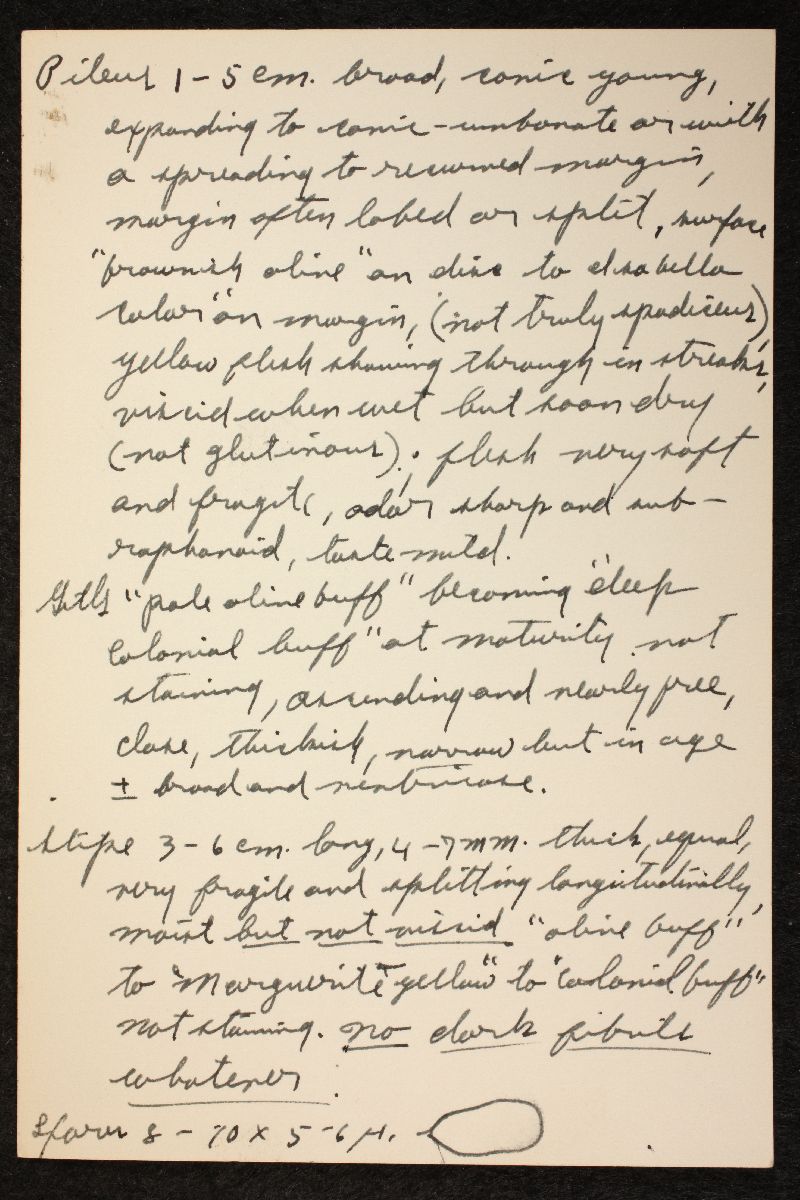 Pileus 1-5 cm. broad, conic young,
expanding to conic-umbonate or with
a spreading to recurved margin,
margin often lobed or split, surface
"brownish olive" on disc to "Isabella
color" on margin, (not truly spadiceus),
yellow flesh showing through in streaks,
viscid when wet but soon dry
(not glutinous); flesh very soft
and fragile, odor sharp and sub-
raphanoid, taste mild.
Gills "pale olive buff" becoming "deep
colonial buff" at maturity not
staining, ascending and nearly free,
close, thickish, narrow but in age
± broad and ventricose.
Stipe 3-6 cm. long, 4-7 mm. thick, equal,
very fragile and splitting longitudinally,
moist but not viscid "olive buff"
to "Marguerite yellow" to "colonial buff"
not staining. no dark fibrils
whatever.
Spores 8-10 x 5-6 µ.